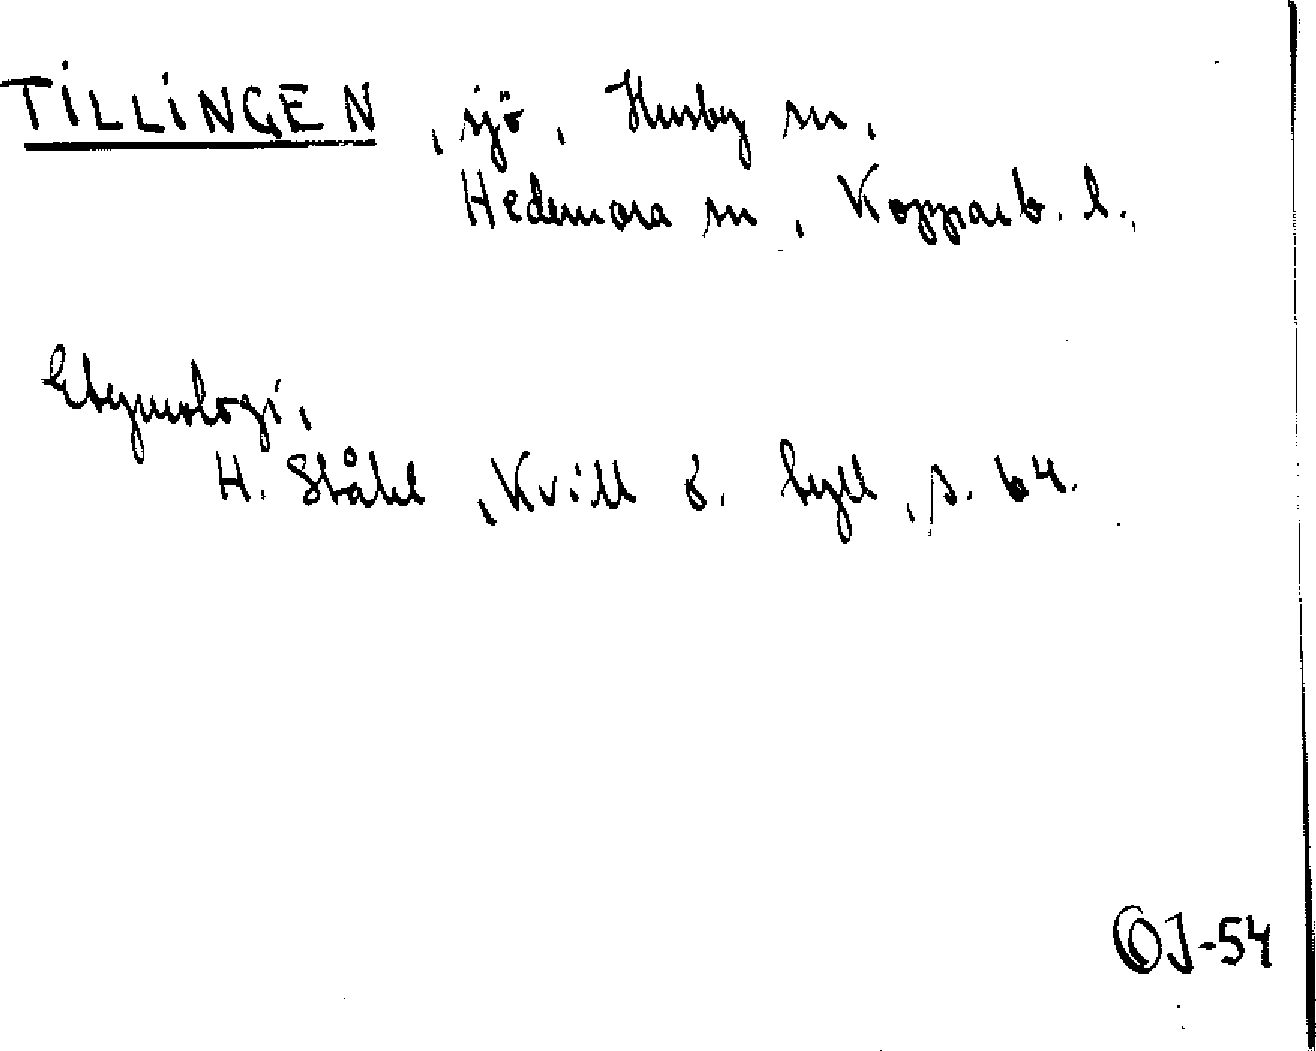 TILLINGEN, sjö, Husby sn,
Hedemora sn, Kopparb. l.,
Etymologi,
H. Ståhl, Kvill o. tyll, s. 64.
OJ-54